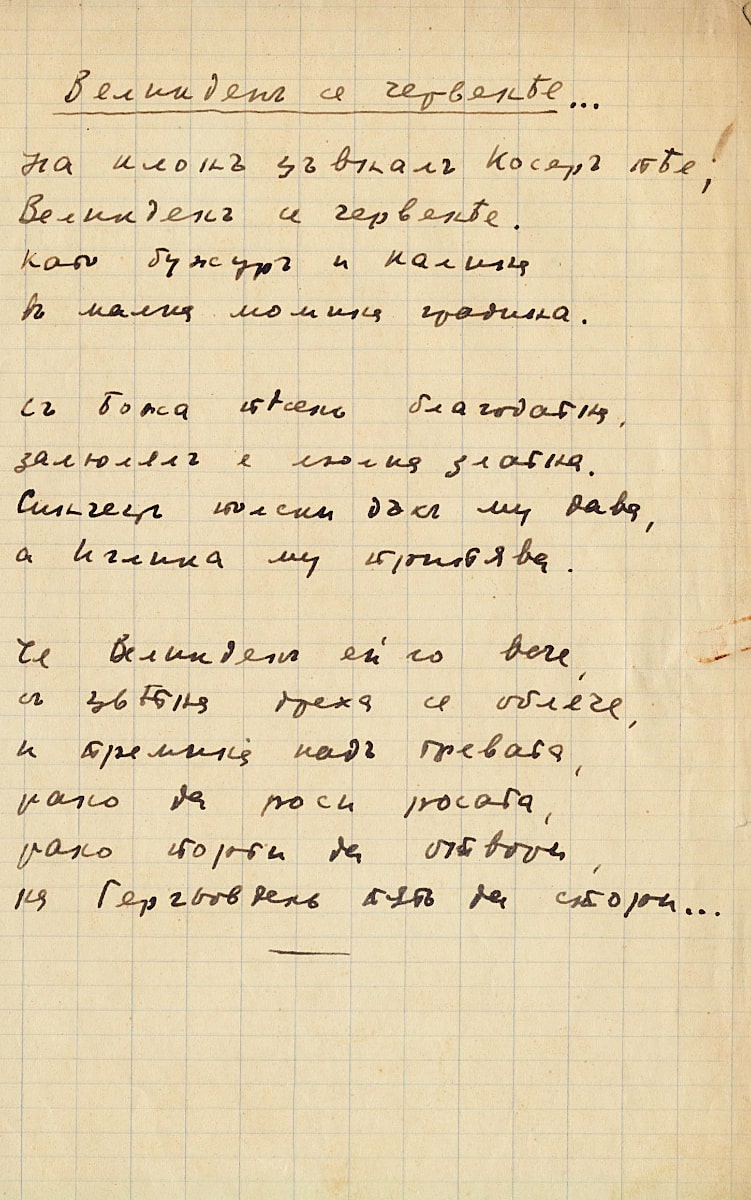 Великденъ се червенѣе...
На клонъ цъвналъ Косеръ пѣе;
Великденъ се червенѣе.
като бужуръ и калина
въ малка момина градина.
съ Божа пѣсень благодатна,
залюлялъ е люлка златна.
Синчецъ полски дъхъ му дава,
а Иглика му припява.
Че Великденъ ей го вече,
съ цвѣтна дреха се облече,
и премина надъ тревата,
рано да роси росата,
рано порти да отвори,
на Гергьовдень пѫть да стори...